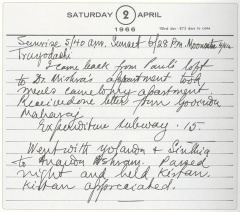 SATURDAY 2 APRIL
1966
92nd day - 273 days to come
Sunrise 5/40 a.m. Sunset 6/28 P.M. Moonrise
Trayodashi
I came back from Paul's loft
to Dr. Mishra's appartment took
meals came to my apartment.
Received one letter from Govinda
Maharaj
Expenditure subway -.15
Went with yolanda & Sinthia
to Ananda Ashram. Passed
night and held Kirtan.
Kirtan appreciated.